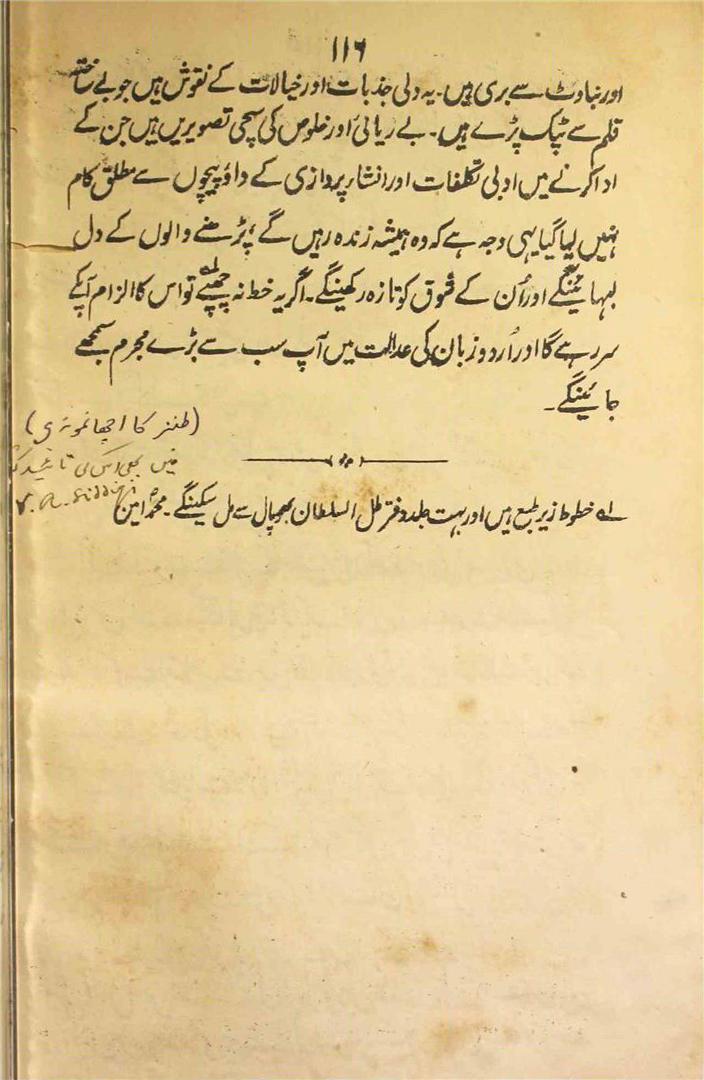 ۱۱۶
اور بناوٹ سے بری ہیں۔ یہ دلی جذبات اور خیالات کے نقوش ہیں جو بے ساختہ
قلم سے ٹپک پڑے ہیں۔ بے ریائی اور خلوص کی سچی تصویریں ہیں جن کے
ادا کرنے میں ادبی تکلفات اور انشا پردازی کے داؤ پیچوں سے مطلق کام
نہیں لیا گیا یہی وجہ ہے کہ وہ ہمیشہ زندہ رہیں گے، پڑھنے والوں کے دل
لبھائینگے اور اُن کے ذوق کو تازہ رکھینگے۔ اگر یہ خط نہ چھپے لہ تو اس کا الزام آپکے
سر رہے گا اور اُردو زبان کی عدالت میں آپ سب سے بڑے مجرم سمجھے
جائینگے۔
(طنز کا اچھا نمونہ ہی)
میں بھی اس کی تائید
V. A. Siddiqi
لہ خطوط زیر طبع ہیں اور بہت جلد دفتر ظل السلطان بھوپال سے مل سکینگے۔ محمد امین